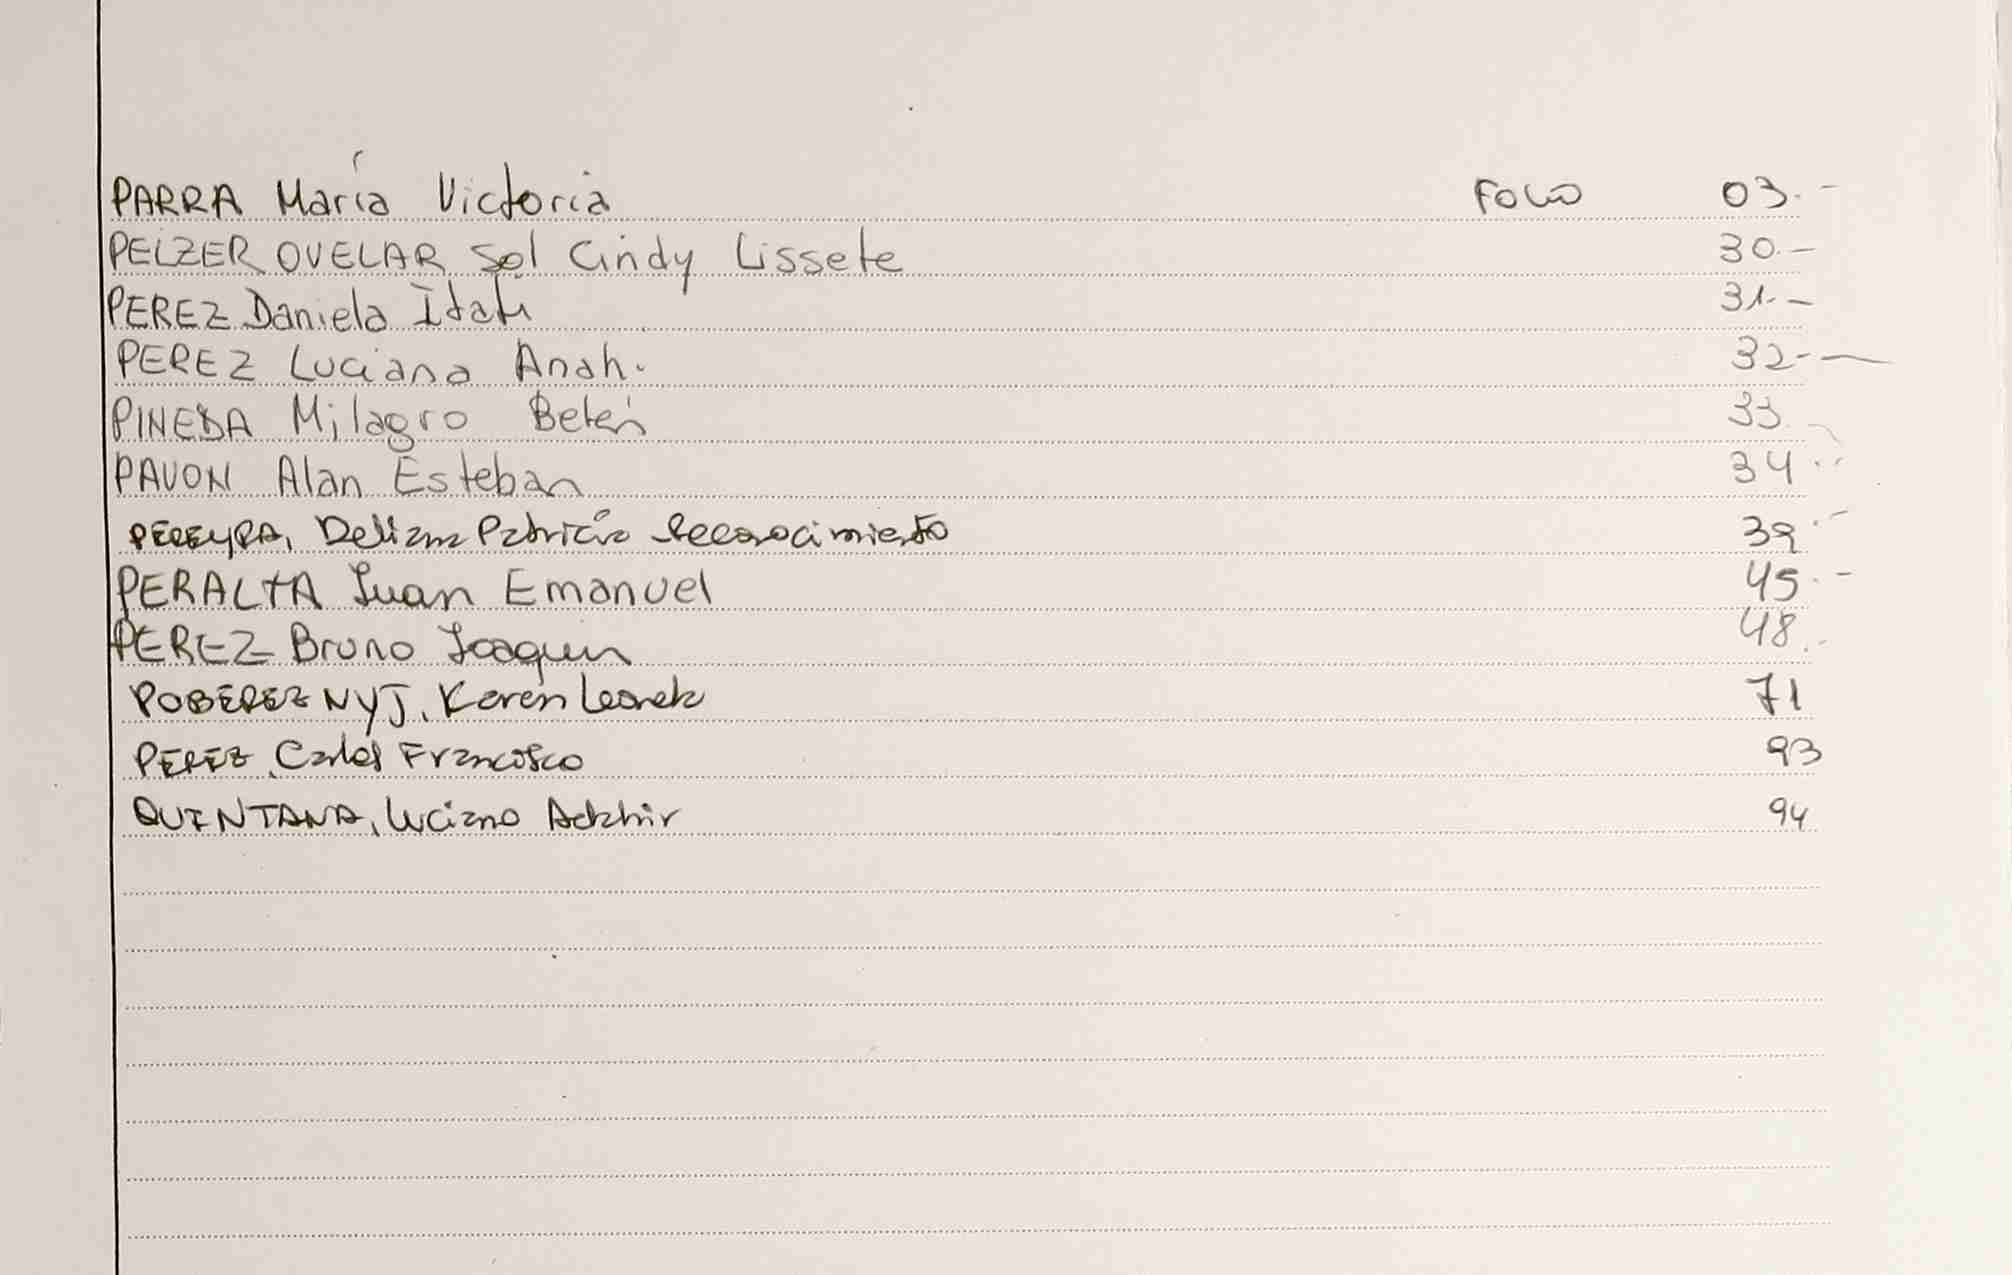 PARRA María Victoria FOLIO 03.-
PELZER OVELAR Sol Cindy Lissete 30.-
PEREZ Daniela Itatí 31.-
PEREZ Luciana Anah. 32.-
PINEDA Milagro Belén 33.
PAVON Alan Esteban 34.-
PEREYRA, Patricia Reconocimiento 39.-
PERALTA Juan Emanuel 45.-
PEREZ Bruno Joaquin 48.-
POBEREZNYJ, Karen 71
PEREZ, Carlos Francisco 93
QUINTANA, Luciano 94